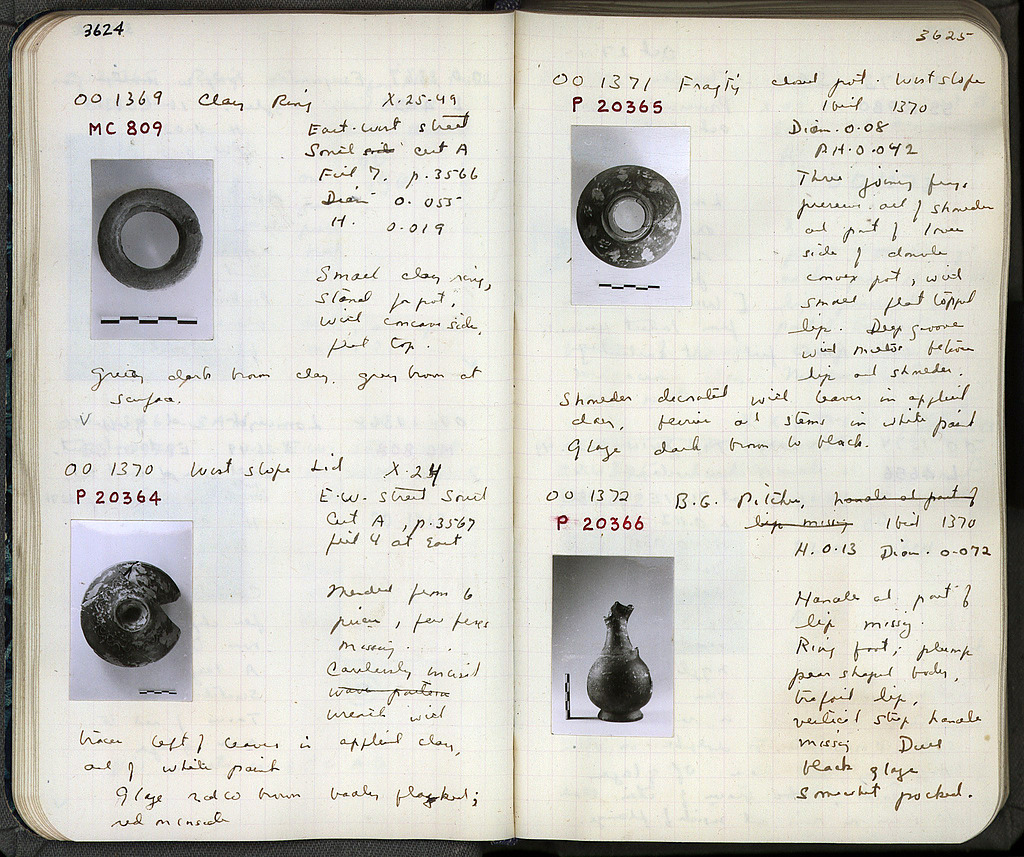 3624
OO 1369 Clay Ring X-25-49
MC 809
East-West street
South cut A
Fill 7, p. 3566
Diam 0.055
H. 0.019
Small clay ring,
stand for pot,
with concave side,
flat top.
dark brown clay, grey brown at
surface.
V
OO 1370 West slope Lid X-24
P 20364
E.W. street South
Cut A, p. 3567
fill 4 at East
Mended from 6
pieces, few pieces
missing.
Carelessly incised
wave pattern
wreath with
traces left of leaves in applied clay,
and of white paint
Glaze red brown badly flaked;
red on inside
3625
OO 1371 Frag'ty closed pot. West slope
P 20365
Ibid 1370
Diam. 0.08
P.H. 0.042
Three joining frags
preserve all of shoulder
and part of lower
side of double
convex pot, with
small flat topped
lip. Deep groove
with between
lip and shoulder.
Shoulder decorated with leaves in applied
clay, and stems in white paint
Glaze dark brown to black.
OO 1372 B.G. Pitcher, handle and part of
P 20366
lip missing Ibid 1370
H. 0.13 Diam. 0.072
Handle and part of
lip missing.
Ring foot; plump
pear shaped body,
trefoil lip,
vertical strap handle
missing Dull
black glaze
somewhat pocked.